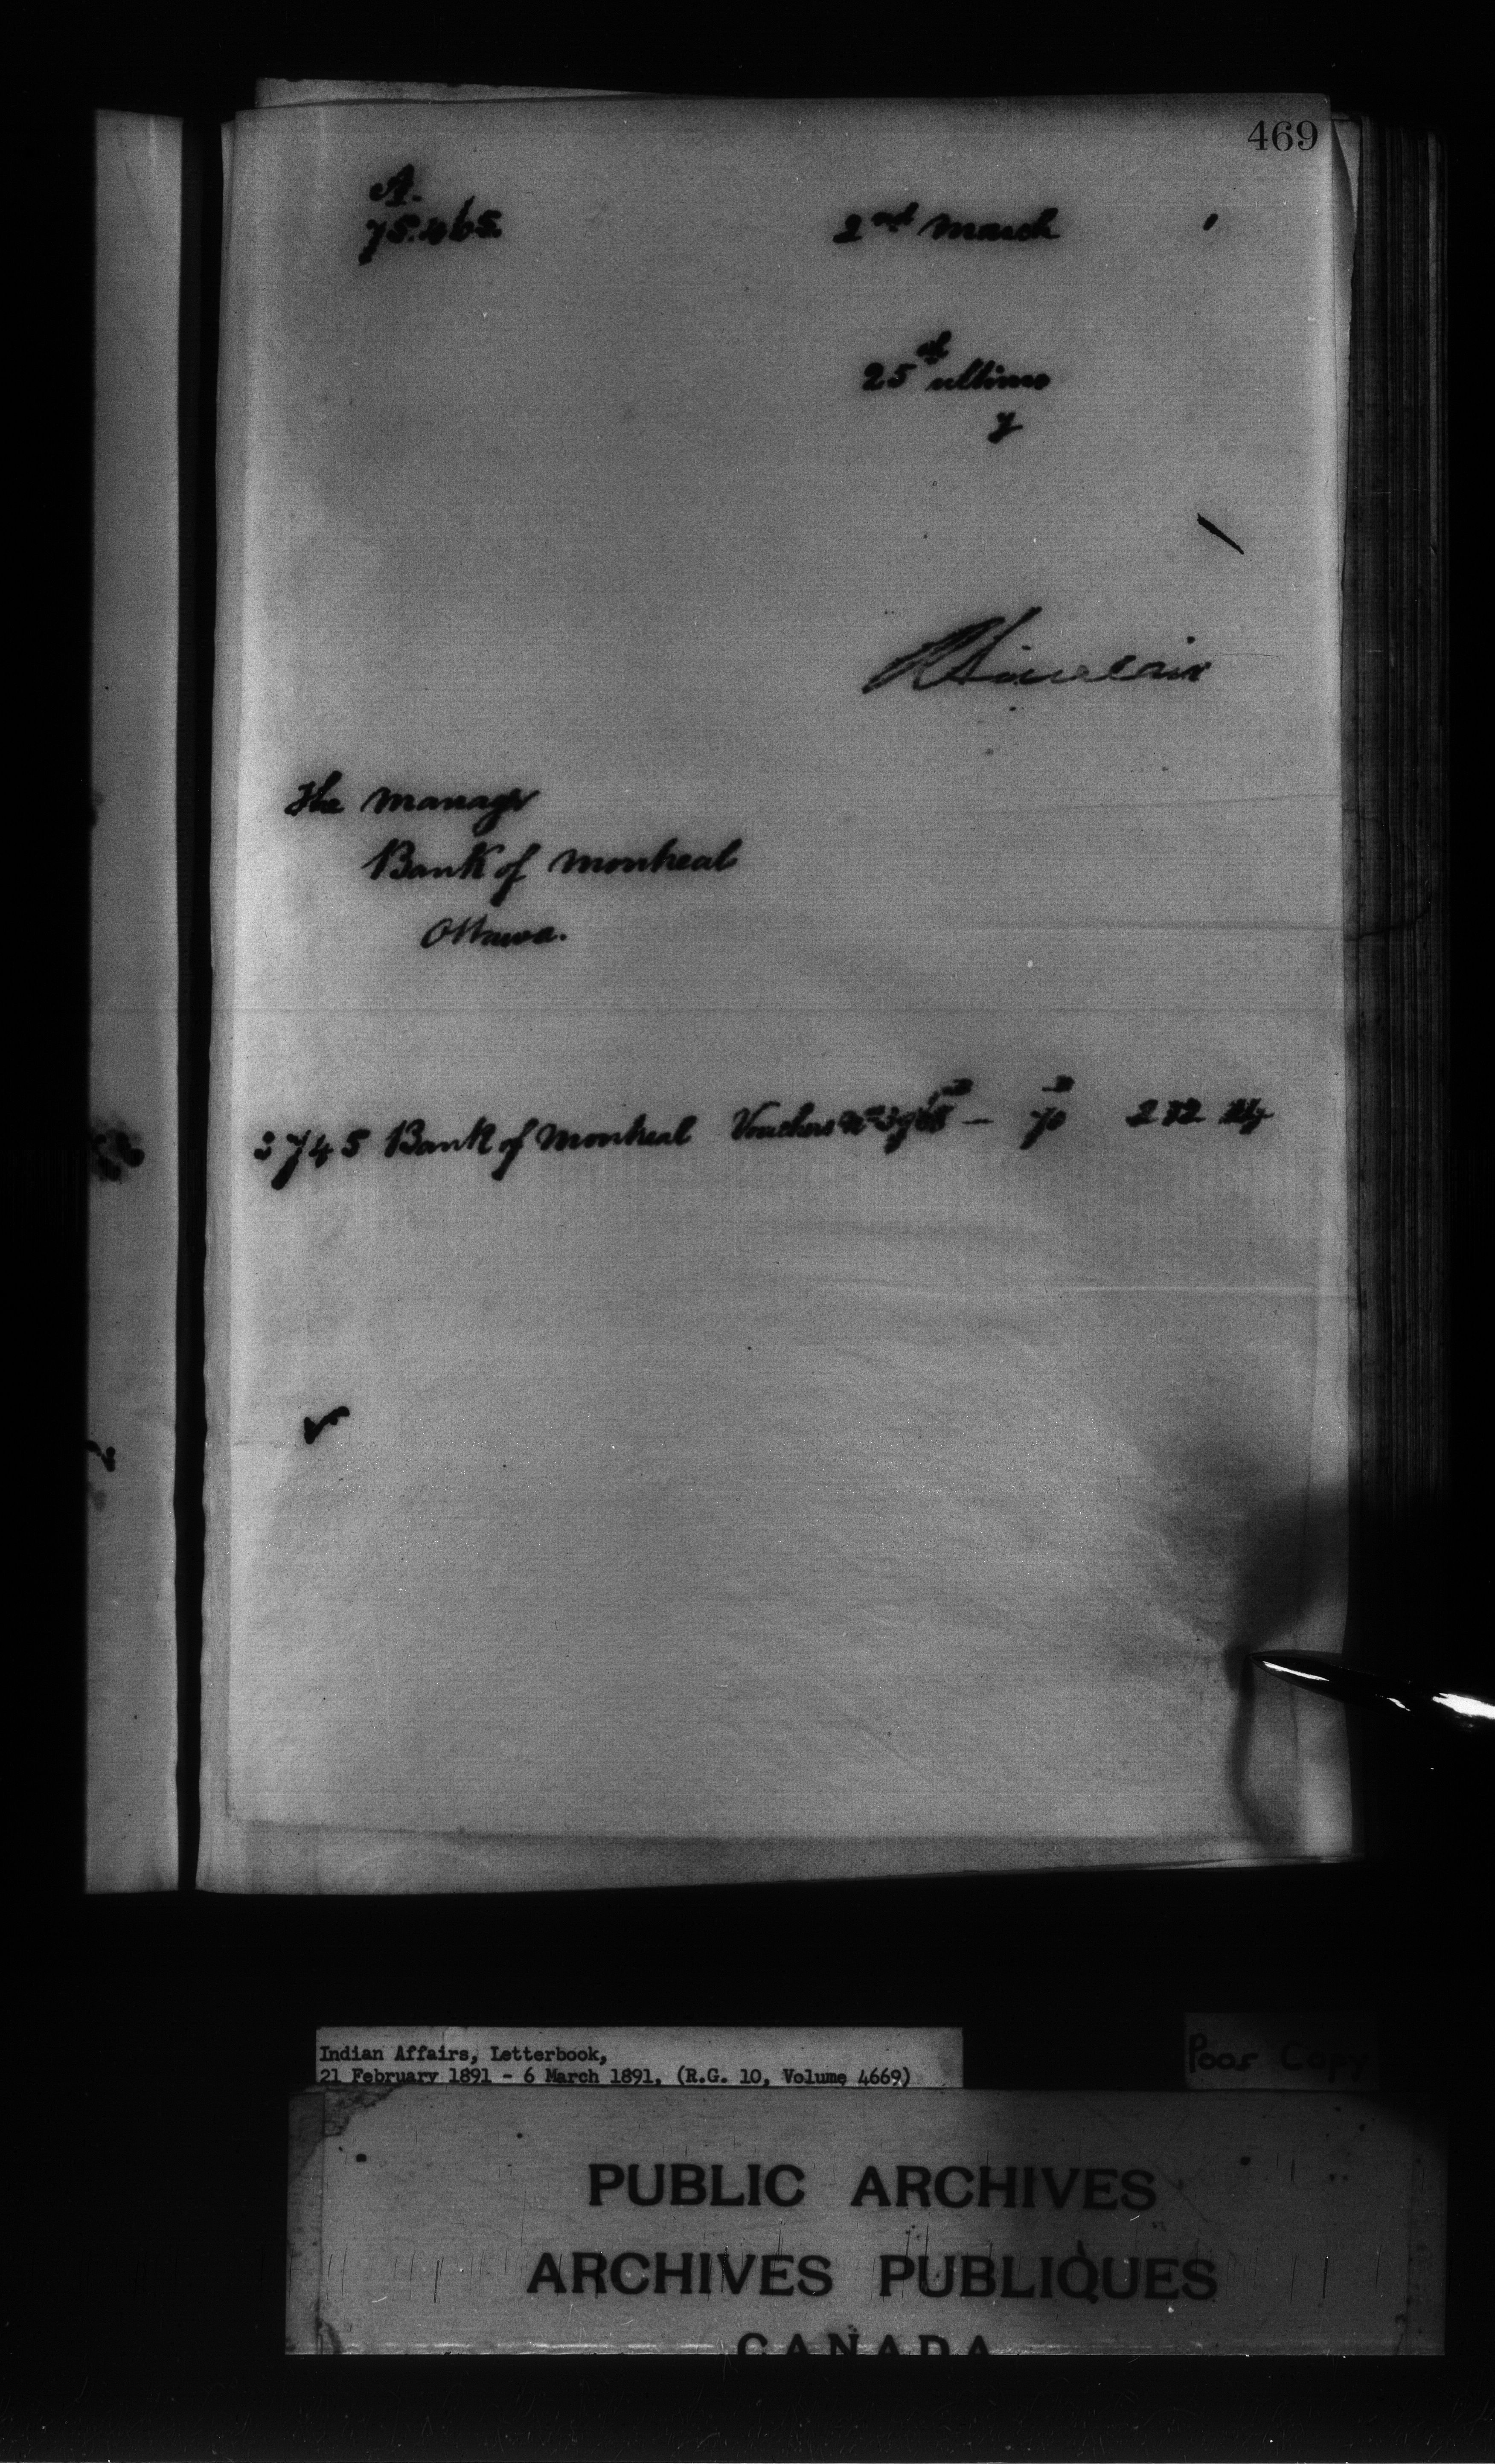 469
A.
75.465
2nd March
25th ultimo
y
Sinclair
The Manager
Bank of Montreal
Ottawa.
3745 Bank of Montreal Vouchers No — 70 272
Indian Affairs, Letterbook,
21 February 1891 - 6 March 1891, (R.G. 10, Volume 4669)
Poor Copy
PUBLIC ARCHIVES
ARCHIVES PUBLIQUES
CANADA